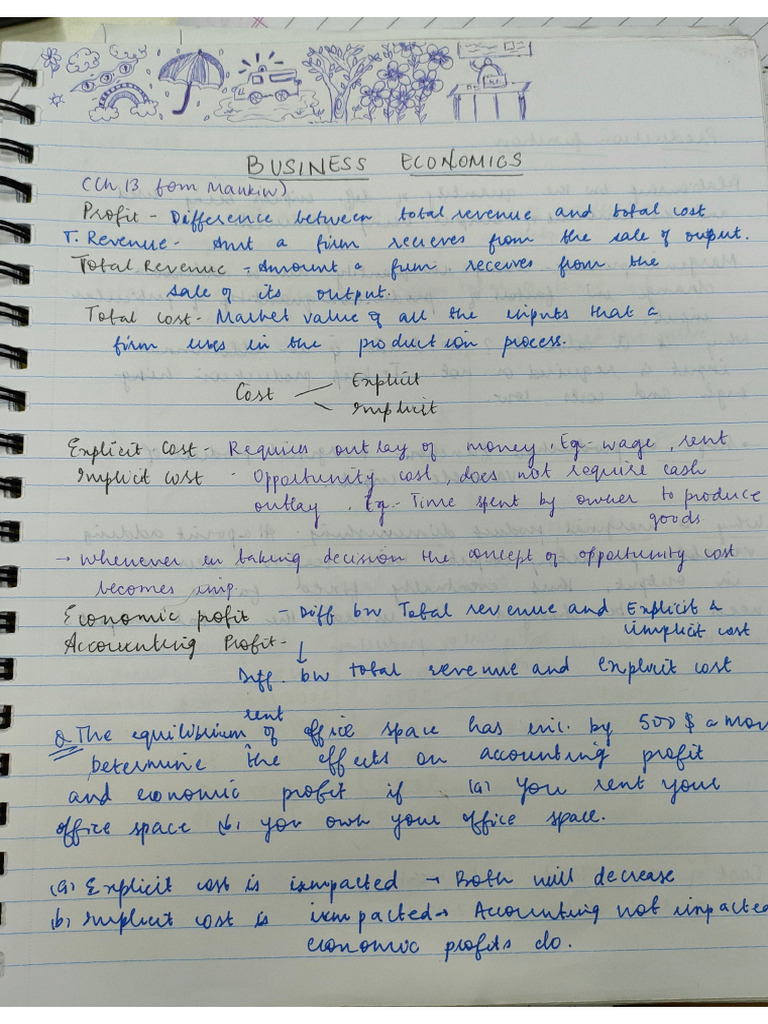 BUSINESS ECONOMICS
(Ch 13 fom Mankiw)
Profit - Difference between total revenue and total cost
T. Revenue - Amt a firm recieves from the sale of output.
Total Revenue = Amount a firm receives from the
sale of its output.
Total cost - Market value of all the inputs that a
firm uses in the production process.
Cost Explicit
Implicit
Explicit cost - Requires outlay of money. Eg - wage, rent
Implicit cost - Opportunity cost, does not require cash
outlay. Eg:- Time spent by owner to produce
goods
→ Whenever in taking decision the concept of opportunity cost
becomes imp.
Economic profit - Diff bw Total revenue and Explicit &
implicit cost
Accounting Profit - ↓
Diff. bw total revenue and explicit cost
rent
Q The equilibrium ^ of office space has inc. by 500 $ a mon
Determine the effects on accounting profit
and economic profit if (a) you rent your
office space (b) you own your office space.
(a) Explicit cost is impacted → Both will decrease
(b) Implicit cost is impacted → Accounting not impacted
economic profits do.